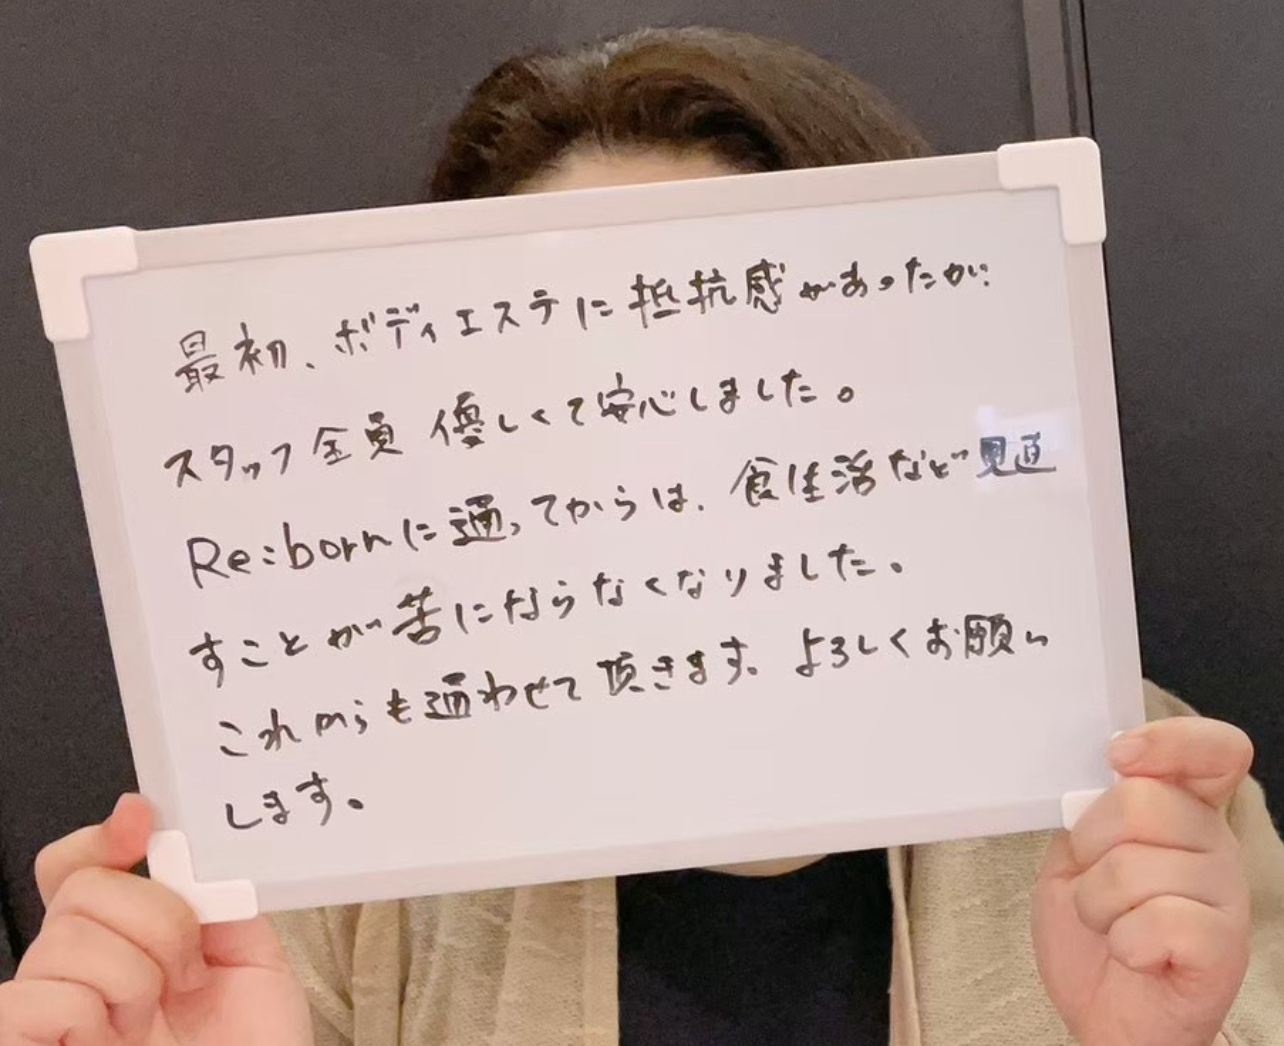 最初、ボディエステに抵抗感があったが、
スタッフ全員優しくて安心しました。
Re:bornに通ってからは、食生活など見直
すことが苦にならなくなりました。
これからも通わせて頂きます。よろしくお願い
します。